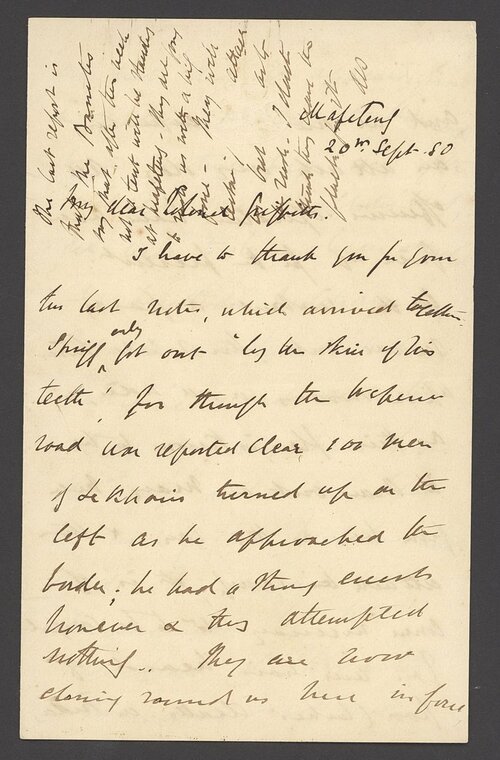 Mafeteng
20th Sept. 80
My dear Colonel Griffith.
I have to thank you for your
two last notes, which arrived together.
Spriggs only got out "by the skin of his
teeth", for though the Wepener
road was reported clear, 100 men
of Lekhoni's turned up on the
left as he approached the
border; he had a strong escort
however & they attempted
nothing. They are now
closing round us here in force,
The last report is
that the Basutos
say that after this week
not a tent will be standing
at Mafeteng. They are
with a big
They will
attack
but
I don't
think they have the